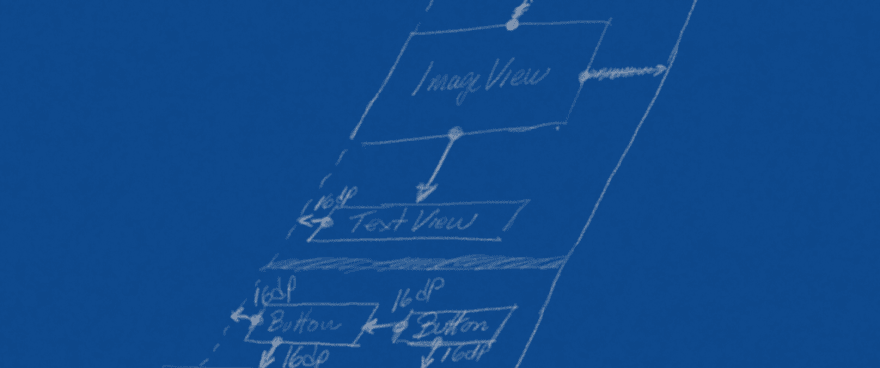 ImageView
16dP
TextView
16dP 16dP
Button Button
16dP 16dP